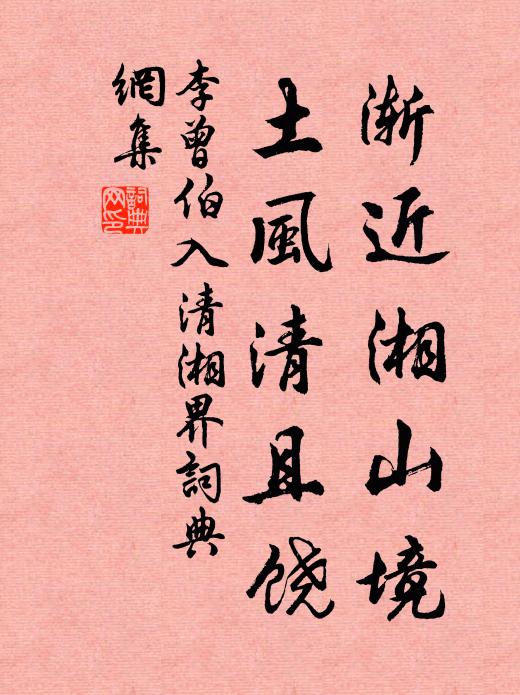 渐近湘山境
土風清且饶
李曾伯入清湘界詞典
網集
詞典
网印